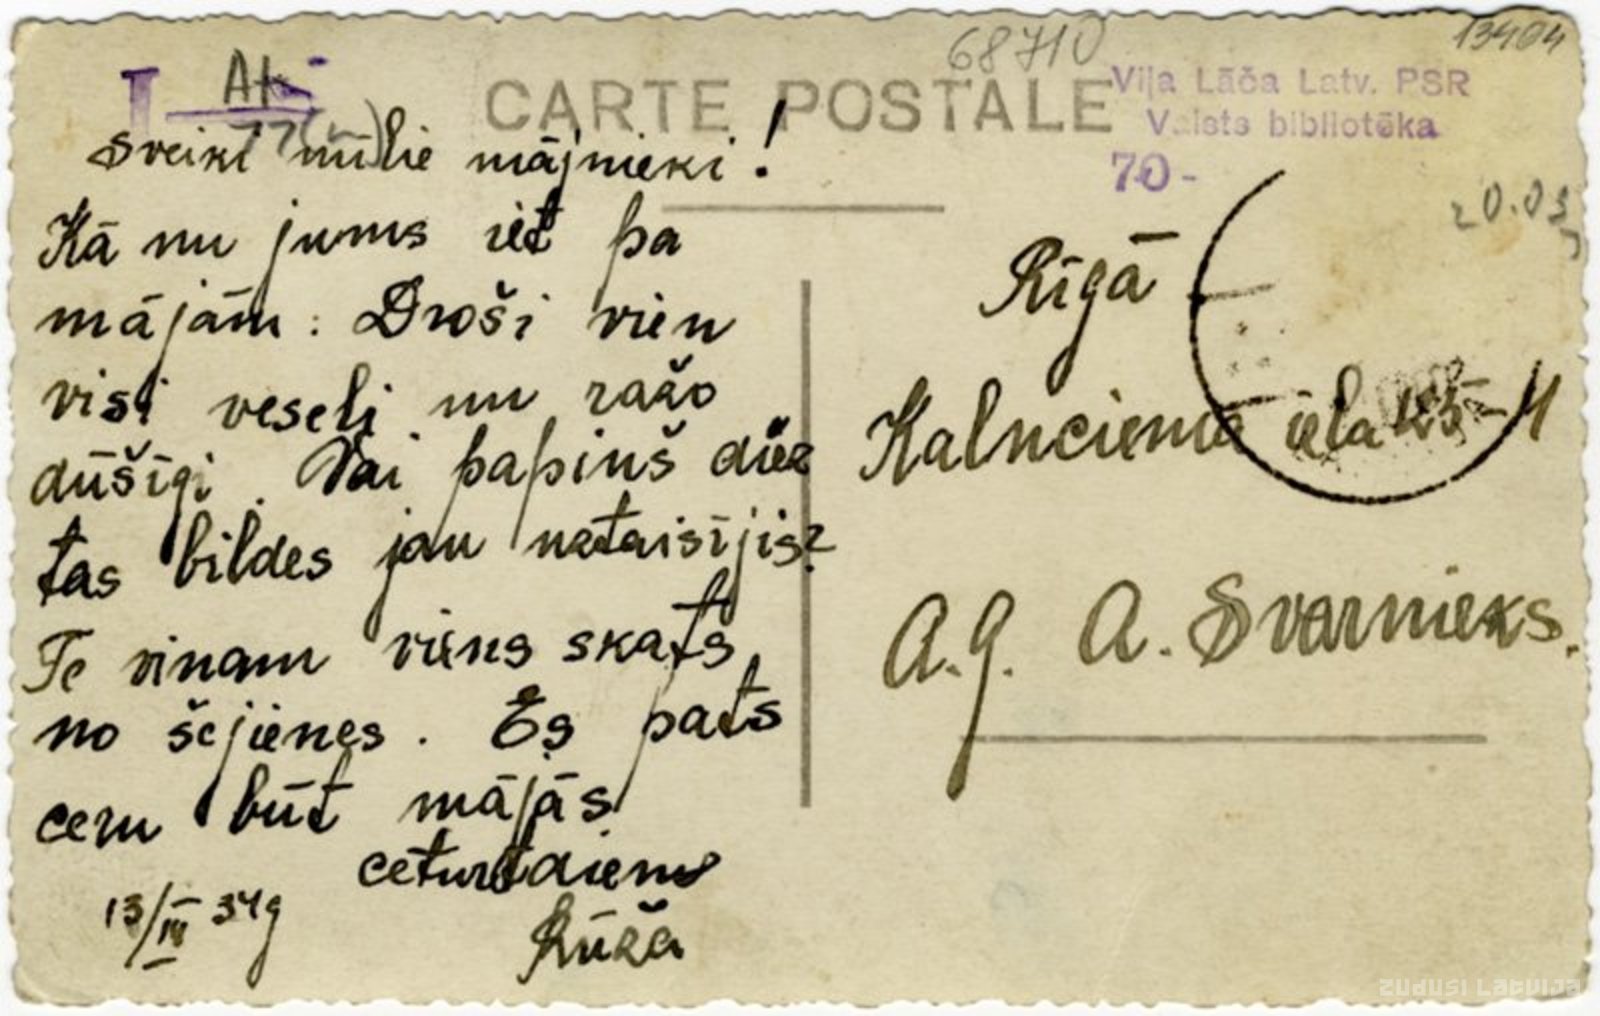 68710
13404
AK
CARTE POSTALE
Viļa Lāča Latv. PSR
Valsts bibliotēka
70-
20.03
Sveiki mīļie mājnieki!
Kā nu jums iet pa
mājām: Droši vien
visi veseli un ražo
dūšīgi. Vai papiņš
tas bildes jau netaisījis?
Te vinam viens skats
no šejienes. Es pats
ceru būt mājās
ceturtdienu
13/IV 34g
Rūža
Rīgā
Kalnciema iela
A.g. A. Svarnieks.
ZUDUSI LATVIJA